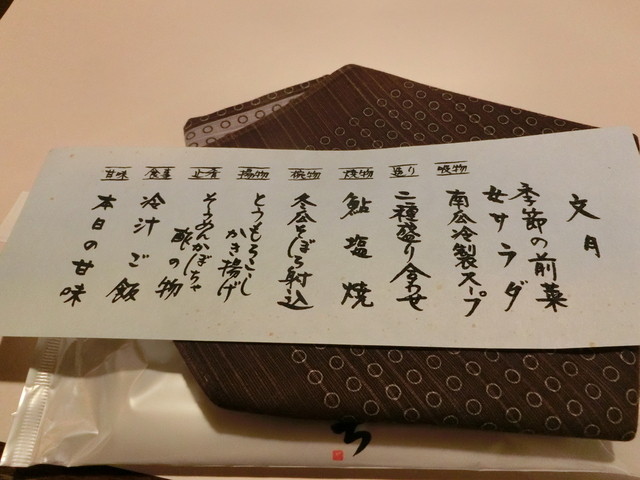 文月
季節の前菜
女サラダ
吸物
南瓜冷製スープ
造り
二種盛り合わせ
焼物
鮎塩焼
焚物
冬瓜そぼろ射込
揚物
とうもろこし
かき揚げ
止肴
そうめんかぼちゃ
酢の物
食事
冷汁ご飯
甘味
本日の甘味